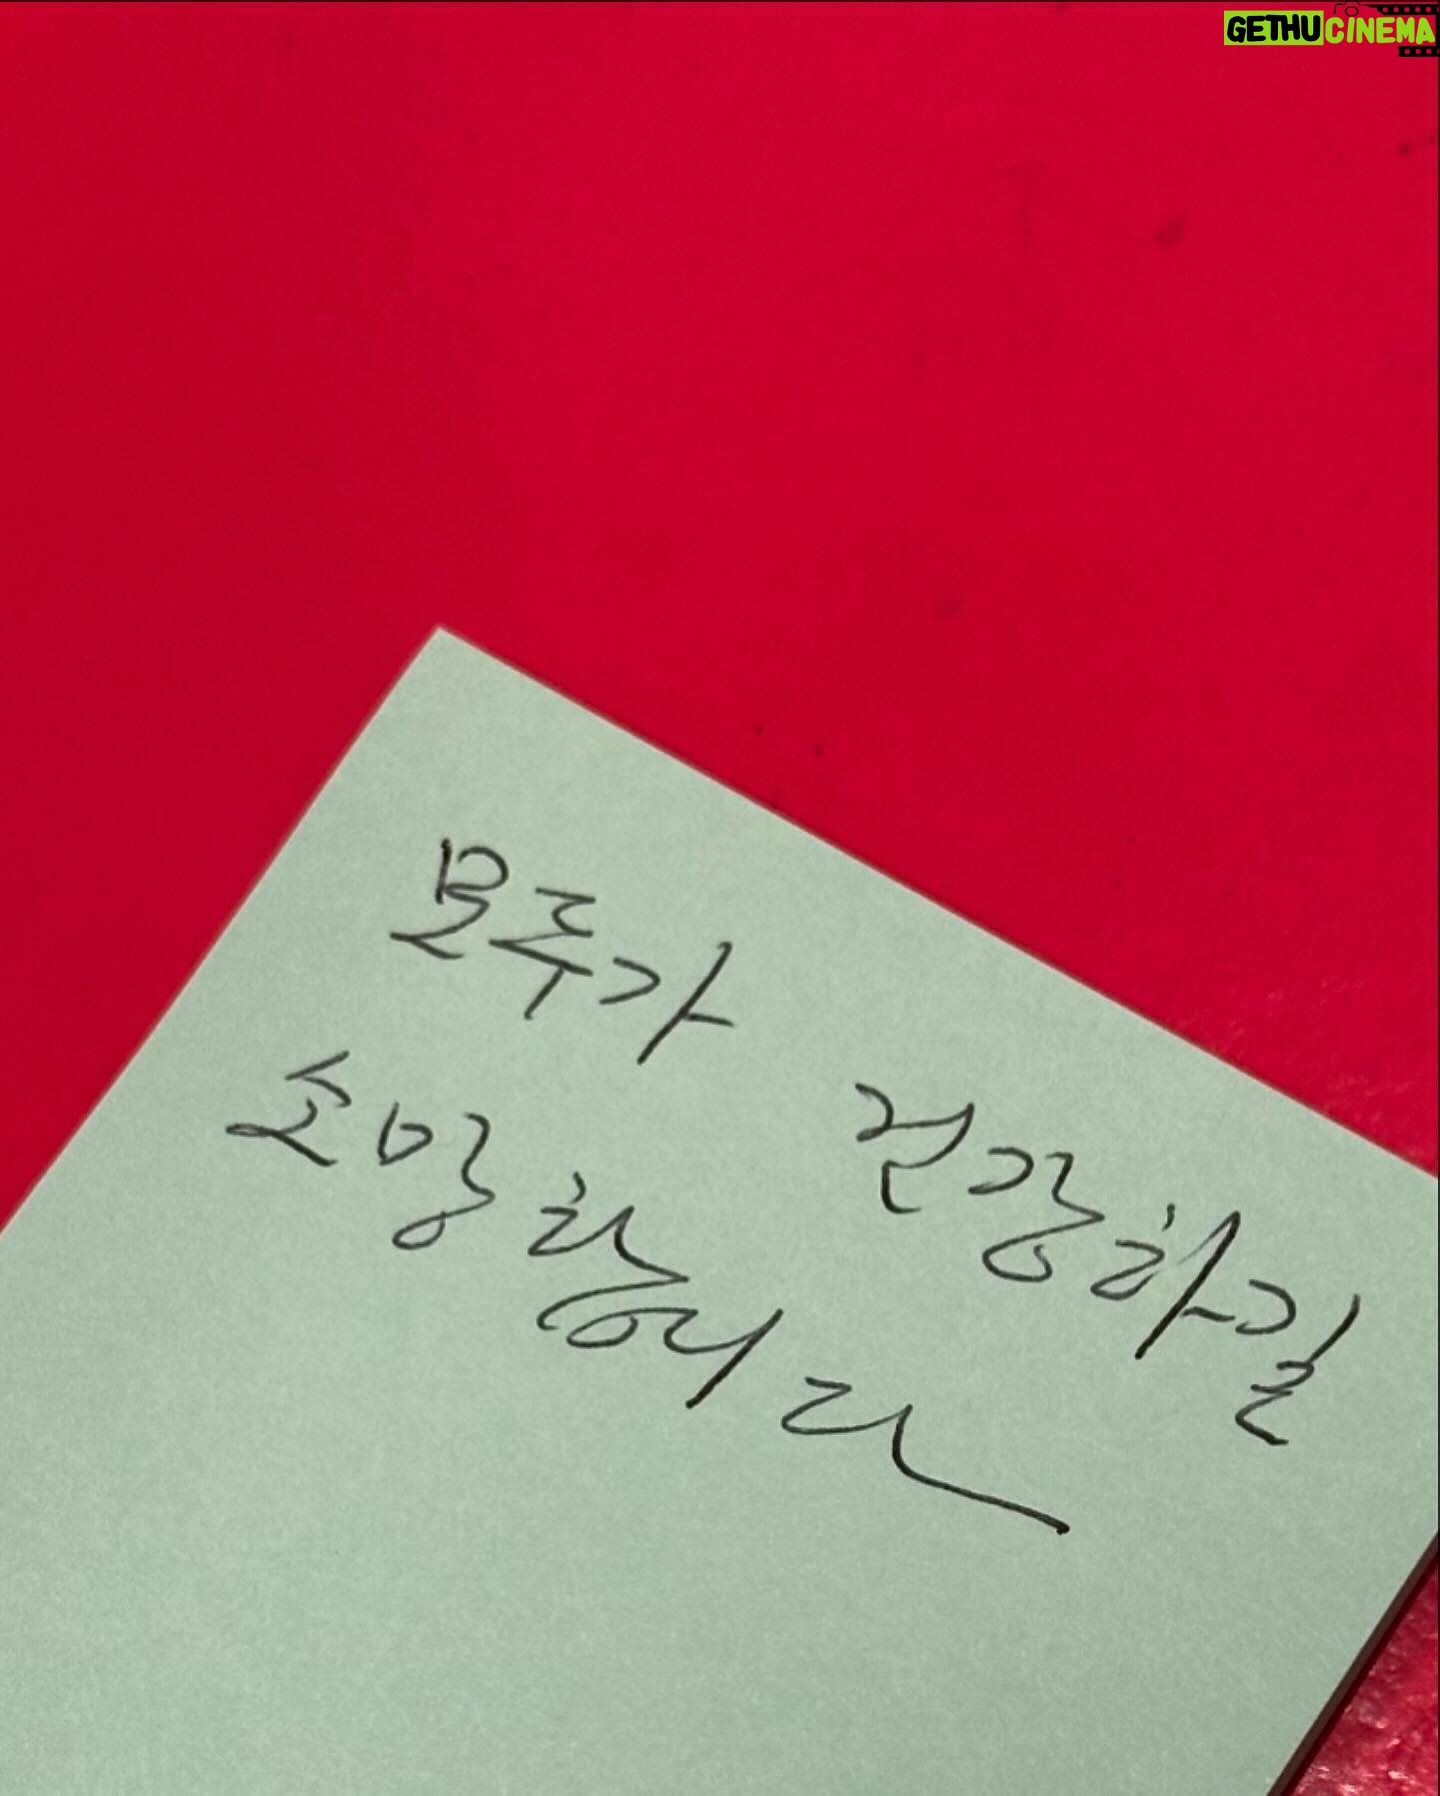 GETHUCINEMA
모두가 건강하길
소망합니다